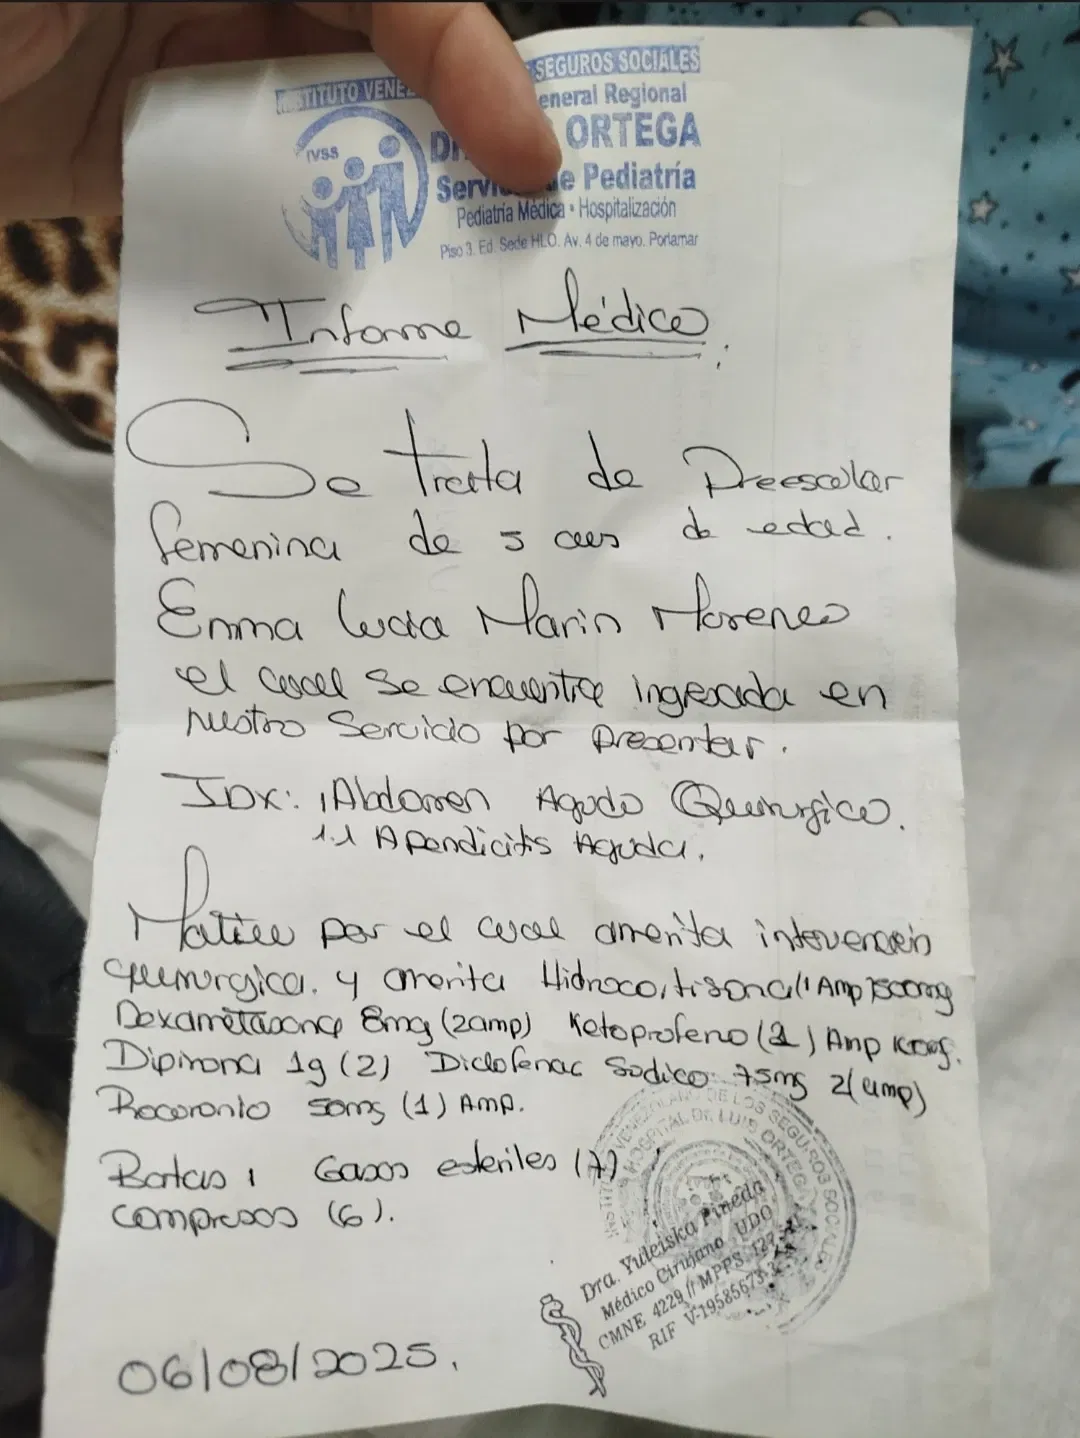 INSTITUTO VENEZ SEGUROS SOCIALES
eneral Regional
ORTEGA
IVSS
Servicio de Pediatría
Pediatría Médica • Hospitalización
Piso 3. Ed. Sede HLO. Av. 4 de mayo. Porlamar
Informe Médico.
Se trata de Preescolar
femenina de 5 años de edad.
Emma Lucia Marin Moreno
el cual se encuentra ingresada en
nuestro Servicio por presentar.
IDX: 1 Abdomen Agudo Quirurgico.
1.1 Apendicitis Aguda.
Motivo por el cual amerita intervencion
quirurgica. y amerita Hidrocortisona (1 Amp) 500mg
Dexametasona 8mg (2amp) Ketoprofeno (2) Amp
Dipirona 1g (2) Diclofenac Sodico 75mg 2(amp)
Rocuronio 50mg (1) Amp.
Batas 1 Gasas esteriles (7)
compresas (6).
INSTITUTO VENEZOLANO DE LOS SEGUROS SOCIALES
HOSPITAL DR LUIS ORTEGA
Dra. Yuleiska Pineda
Médico Cirujano UDO
CMNE 4229 // MPPS 127
RIF V-19585673-3
06/08/2025.